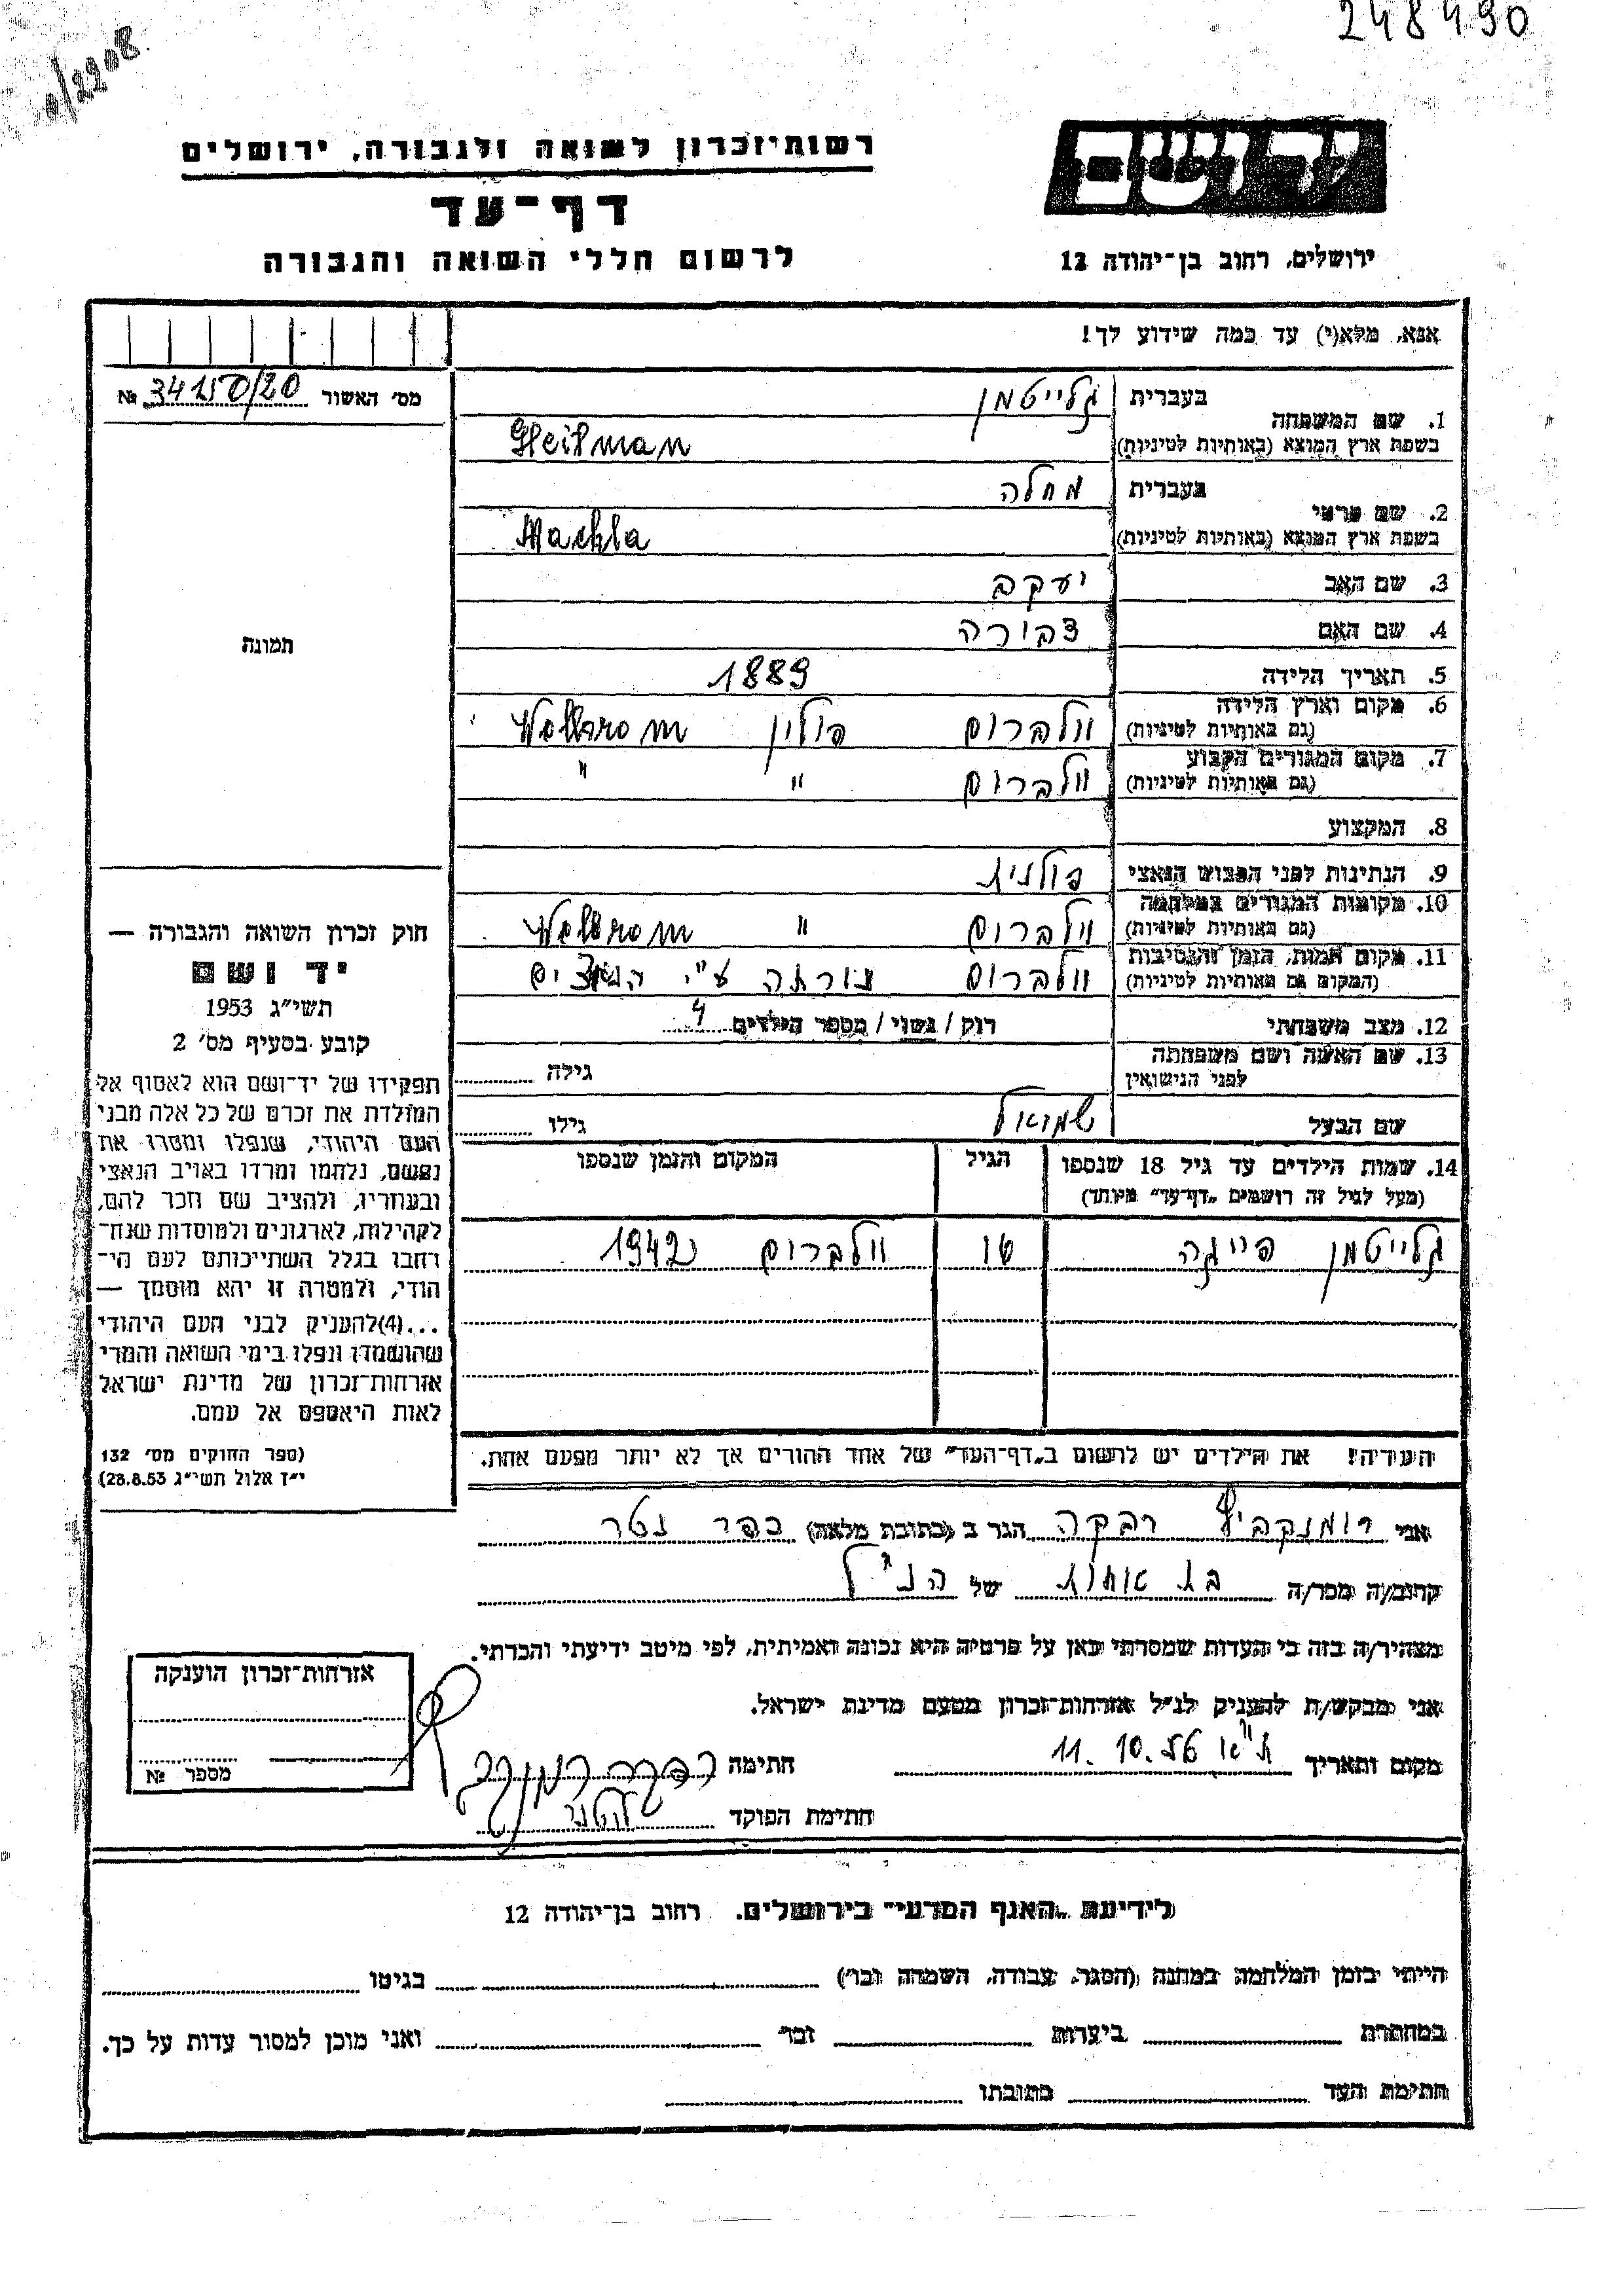 248490
0/2208
יד ושם
רשות־זכרון לשואה ולגבורה, ירושלים
דף־עד
לרשום חללי השואה והגבורה
ירושלים, רחוב בן־יהודה 12
אנא, מלא(י) עד כמה שידוע לך!
מס׳ האשור 34150/20 №
1. שם המשפחה בעברית גלייטמן
בשפת ארץ המוצא (באותיות לטיניות) Gleitman
2. שם פרטי בעברית מחלה
בשפת ארץ המוצא (באותיות לטיניות) Machla
3. שם האב יעקב
4. שם האם דבורה
5. תאריך הלידה 1889
6. מקום וארץ הלידה (גם באותיות לטיניות) וולברום פולין Wolbrom
7. מקום המגורים הקבוע (גם באותיות לטיניות) וולברום " "
8. המקצוע
9. הנתינות לפני הכבוש הנאצי פולנית
10. מקומות המגורים במלחמה (גם באותיות לטיניות) וולברום " Wolbrom
11. מקום המות, הזמן והנסיבות (המקום גם באותיות לטיניות) וולברום נורתה ע"י הנאצים
12. מצב משפחתי רוק / נשוי / מספר הילדים 4
13. שם האשה ושם משפחתה לפני הנישואין גילה
שם הבעל שמואל גילו
14. שמות הילדים עד גיל 18 שנספו הגיל המקום והזמן שנספו
(מעל לגיל זה רושמים „דף־עד” מיוחד)
גלייטמן פייגה טו וולברום 1942
העריה! את הילדים יש לרשום ב„דף־העד” של אחד ההורים אך לא יותר מפעם אחת.
תמונה
חוק זכרון השואה והגבורה —
יד ושם
תשי״ג 1953
קובע בסעיף מס׳ 2
תפקידו של יד־ושם הוא לאסוף אל
המולדת את זכרם של כל אלה מבני
העם היהודי, שנפלו ומסרו את
נפשם, נלחמו ומרדו באויב הנאצי
ובעוזריו, ולהציב שם וזכר להם,
לקהילות, לארגונים ולמוסדות שנח־
רחבו בגלל השתייכותם לעם הי־
הודי, ולמטרה זו יהא מוסמך —
...(4)להעניק לבני העם היהודי
שהושמדו ונפלו בימי השואה והמרי
אזרחות־זכרון של מדינת ישראל
לאות היאספם אל עמם.
(ספר החוקים מס׳ 132
י״ז אלול תשי״ג 28.8.53)
אני רומנקביץ רבקה הגר ב (כתובת מלאה) כפר נטר
קרוב/ה מכר/ה בת אחות של הנ"ל
מצהיר/ה בזה כי העדות שמסרתי כאן על פרטיה היא נכונה ואמיתית, לפי מיטב ידיעתי והכרתי.
אני מבקש/ת להעניק לנ״ל אזרחות־זכרון מטעם מדינת ישראל.
מקום ותאריך ת"א 11.10.56 חתימה
חתימת הפוקד
אזרחות־זכרון הוענקה
מספר №
לידיעת „האגף המדעי” בירושלים, רחוב בן־יהודה 12
הייתי בזמן המלחמה במחנה (הסגר, עבודה, השמדה וכו׳) בגיטו
במחתרת ביערות וכו׳ ואני מוכן למסור עדות על כך.
חתימת העד כתובתו